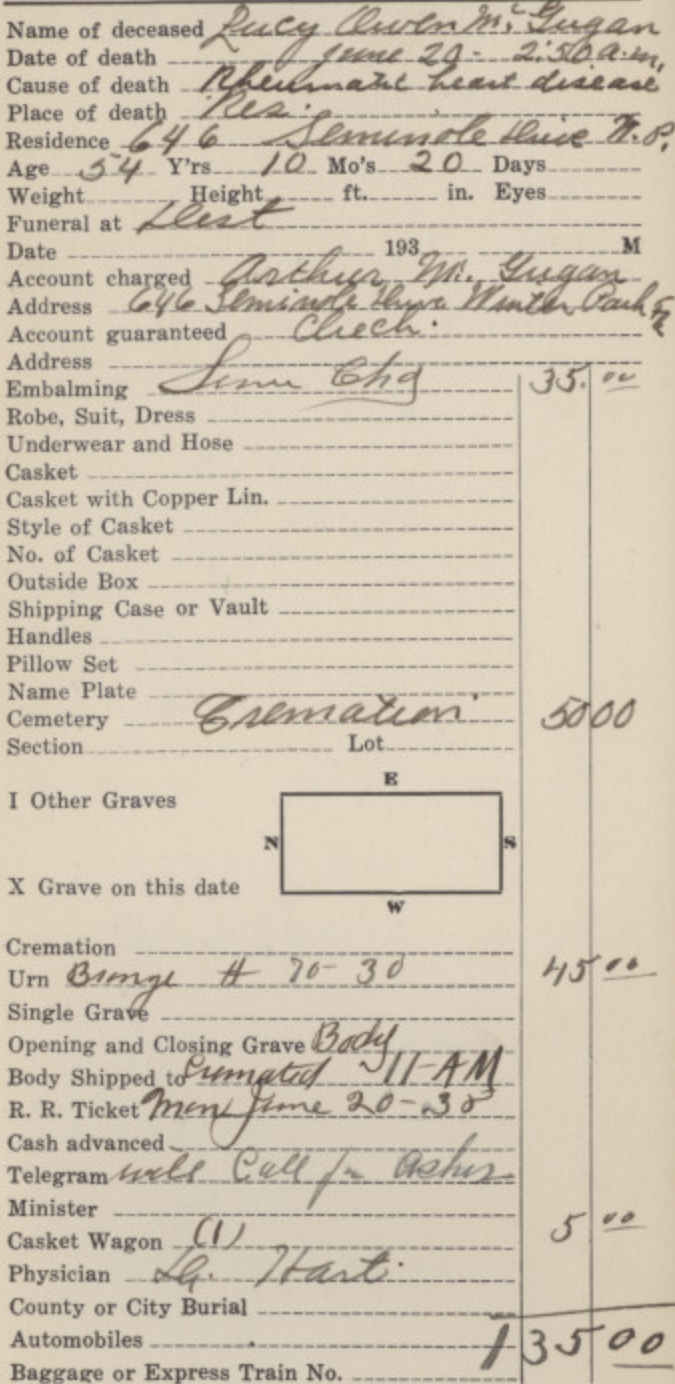 Name of deceased Lucy Owen Mc Gugan
Date of death June 20 - 2:50 a.m.
Cause of death Rheumatic heart disease
Place of death Res.
Residence 646 Seminole Drive W.P.
Age 54 Y'rs 10 Mo's 20 Days
Weight Height ft. in. Eyes
Funeral at
Date 193 M
Account charged Arthur Mc. Gugan
Address 646 Seminole Drive Winter Park Fla
Account guaranteed Check.
Address
Embalming Serv Chg 35.00
Robe, Suit, Dress
Underwear and Hose
Casket
Casket with Copper Lin.
Style of Casket
No. of Casket
Outside Box
Shipping Case or Vault
Handles
Pillow Set
Name Plate
Cemetery Cremation 50 00
Section Lot
E
I Other Graves
N S
X Grave on this date
W
Cremation
Urn Bronze # 70-30 45 00
Single Grave
Opening and Closing Grave Body
Body Shipped to Cremated 11-AM
R. R. Ticket Mon June 20-38
Cash advanced
Telegram will Call for Ashes
Minister
Casket Wagon (1) 5 00
Physician Hart.
County or City Burial
Automobiles 135 00
Baggage or Express Train No.